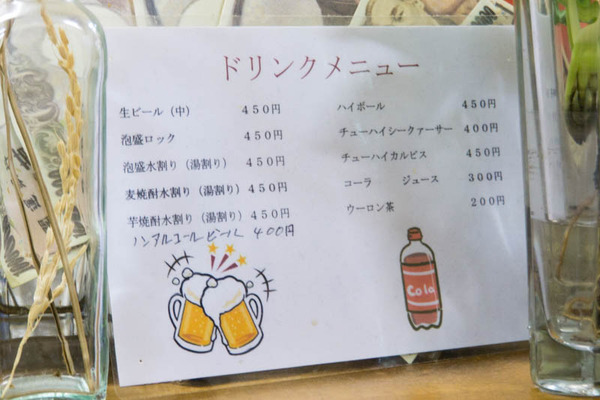 ドリンクメニュー
生ビール（中） ４５０円
泡盛ロック ４５０円
泡盛水割り（湯割り） ４５０円
麦焼酎水割り（湯割り） ４５０円
芋焼酎水割り（湯割り） ４５０円
ノンアルコールビール ４００円
ハイボール ４５０円
チューハイシークァーサー ４００円
チューハイカルピス ４５０円
コーラ ジュース ３００円
ウーロン茶 ２００円
Cola